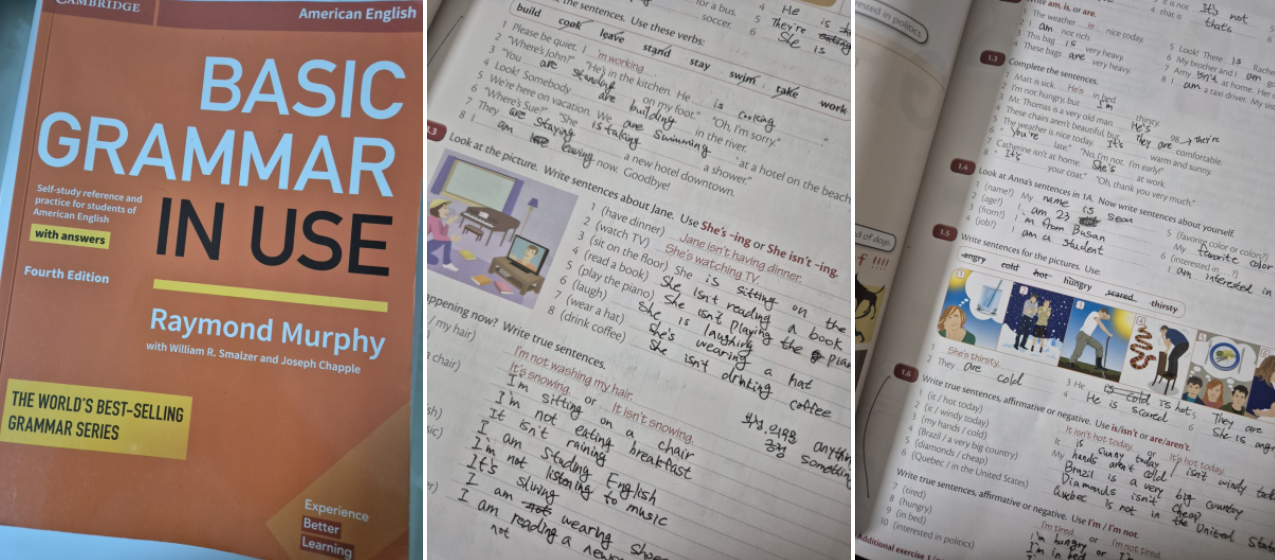 CAMBRIDGE
American English
BASIC
GRAMMAR
IN USE
Self-study reference and
practice for students of
American English
with answers
Fourth Edition
Raymond Murphy
with William R. Smalzer and Joseph Chapple
THE WORLD'S BEST-SELLING
GRAMMAR SERIES
Experience
Better
Learning
the sentences. Use these verbs:
build cook leave stand stay swim take work
1 Please be quiet. I 'm working.
2 "Where's John?" "He's in the kitchen. He is cooking
3 "You are standing on my foot." "Oh, I'm sorry."
4 Look! Somebody is swimming in the river.
5 We're here on vacation. We are staying at a hotel on the beach
6 "Where's Sue?" "She is taking a shower."
7 They are building a new hotel downtown.
8 I am leaving now. Goodbye!
Look at the picture. Write sentences about Jane. Use She's -ing or She isn't -ing.
1 (have dinner) Jane isn't having dinner.
2 (watch TV) She's watching TV.
3 (sit on the floor) She is sitting on the
4 (read a book) She isn't reading a book
5 (play the piano) She isn't playing the
6 (laugh) She is laughing
7 (wear a hat) She's wearing a hat
8 (drink coffee) She isn't drinking coffee
happening now? Write true sentences.
/ my hair) I'm not washing my hair.
It's snowing. or It isn't snowing.
I'm sitting on a chair
I'm not eating breakfast
It isn't raining
I am studing English
I'm not listening to music
I am not wearing shoes
I am reading a
not
for a bus.
soccer.
4 He is
5 They're
6 She is
am, is, or are.
1 The weather is nice today.
2 I am not rich
3 This bag is very heavy.
4 These bags are very heavy.
It's not
that's
5 Look! There is
6 My brother and I am
7 Amy isn't at home.
8 I am a taxi driver. My
1.3 Complete the sentences.
1 Matt is sick. He's in bed.
2 I'm not hungry, but I'm thirsty.
3 Mr. Thomas is a very old man. He's
4 These chairs aren't beautiful, but they are comfortable.
5 The weather is nice today. It's warm and sunny.
6 "You're late." "No, I'm not. I'm early!"
7 Catherine isn't at home. She's at work.
8 "It's your coat." "Oh, thank you very much."
1.4 Look at Anna's sentences in 1A. Now write sentences about yourself.
1 (name?) My name is sean
2 (age?) I am 23
3 (from?) I'm from Busan
4 (job?) I am a student
5 (favorite color or colors?)
My favorite color
6 (interested in ...?)
I am interested in
1.5 Write sentences for the pictures. Use:
angry cold hot hungry scared thirsty
1 She's thirsty.
2 They are cold
3 He is cold is hot
4 He is scared
5 They are
6 She is
1.6 Write true sentences, affirmative or negative. Use is/isn't or are/aren't.
1 (it / hot today) It isn't hot today. or It's hot today.
2 (it / windy today) It is sunny today / isn't windy
3 (my hands / cold) My hands aren't cold
4 (Brazil / a very big country) Brazil is a very big country
5 (diamonds / cheap) Diamonds isn't cheap
6 (Quebec / in the United States) Quebec is not in the United
Write true sentences, affirmative or negative. Use I'm / I'm not.
7 (tired) I'm tired. or I'm not tired.
8 (hungry) I'm hungry
9 (in bed) I'm in bed
10 (interested in politics)
Additional exercise 1